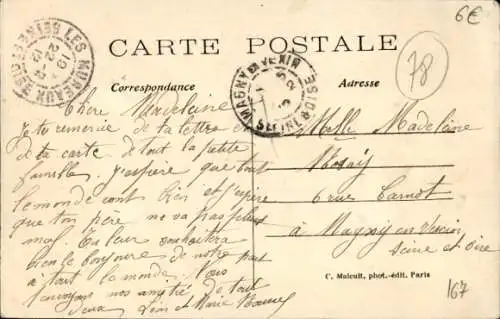 6€
CARTE POSTALE
78
LES MUREAUX SEINE-ET-OISE
MAGNY-EN-VEXIN
SEINE & OISE
Correspondance
Adresse
Chère Madeleine
Je te remercie de ta lettre et
de ta carte de tout la petite
famille. J'espère que tout
le monde vont bien et j'espère
que ton père ne va pas plus
mal. Tu leur souhaitera
bien le bonjour de notre part
à tout le monde. Nous
nos amitié de tout
deux. et Marie
Melle Madeleine
6 rue Carnot
à Magny en Vexin
Seine et Oise
C. Malcuit, phot.-édit. Paris
167